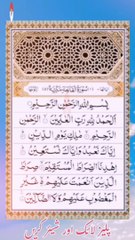 بِسْمِ اللهِ الرَّحْمٰنِ الرَّحِيْمِ
اَلْحَمْدُ لِلّٰهِ رَبِّ الْعٰلَمِيْنَ الرَّحْمٰنِ
الرَّحِيْمِ مٰلِكِ يَوْمِ الدِّيْنِ
اِيَّاكَ نَعْبُدُ وَاِيَّاكَ نَسْتَعِيْنُ
اِهْدِنَا الصِّرَاطَ الْمُسْتَقِيْمَ صِرَاطَ
الَّذِيْنَ اَنْعَمْتَ عَلَيْهِمْ غَيْرِ
الْمَغْضُوْبِ عَلَيْهِمْ وَلَا الضَّآلِّيْنَ
پلیز لائک اور شیئر کریں